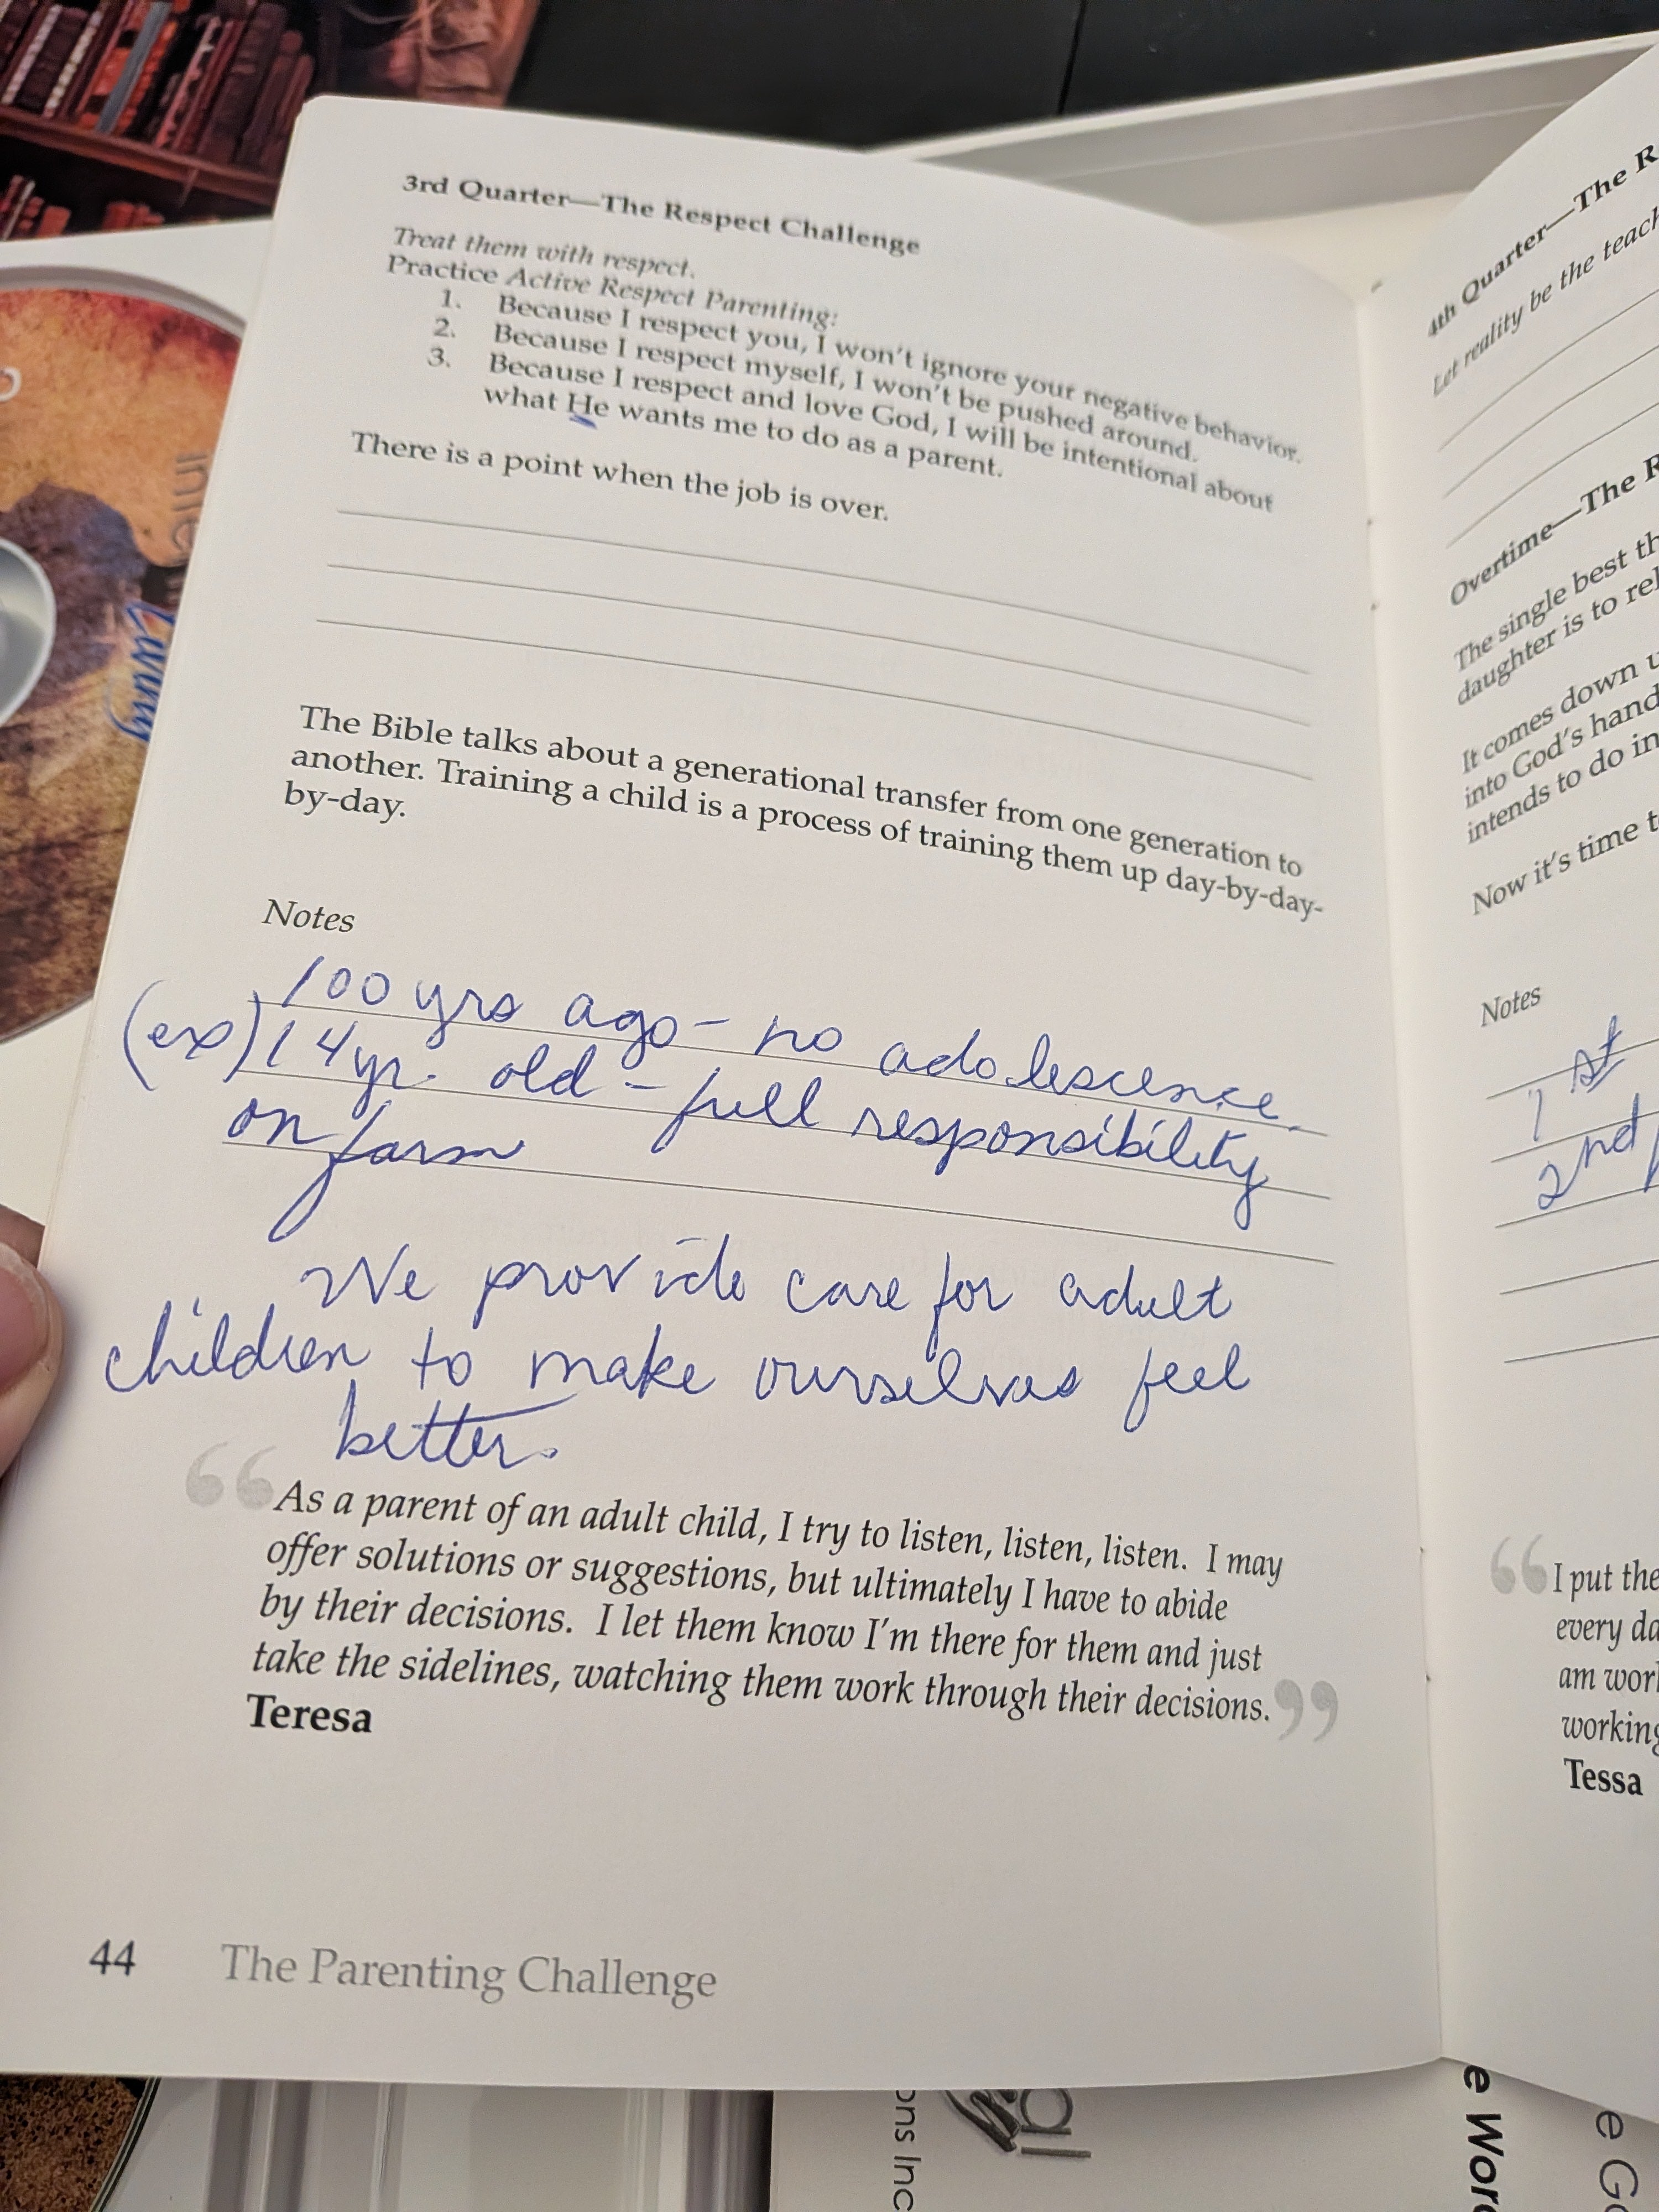 3rd Quarter—The Respect Challenge
Treat them with respect.
Practice Active Respect Parenting:
1. Because I respect you, I won't ignore your negative behavior.
2. Because I respect myself, I won't be pushed around.
3. Because I respect and love God, I will be intentional about
what He wants me to do as a parent.
There is a point when the job is over.
The Bible talks about a generational transfer from one generation to
another. Training a child is a process of training them up day-by-day-
by-day.
Notes
100 yrs ago - no adolescence.
(ex) 14 yr. old - full responsibility
on farm
We provide care for adult
children to make ourselves feel
better.
“As a parent of an adult child, I try to listen, listen, listen. I may
offer solutions or suggestions, but ultimately I have to abide
by their decisions. I let them know I'm there for them and just
take the sidelines, watching them work through their decisions.”
Teresa
44 The Parenting Challenge
4th Quarter—The R
Let reality be the teach
Overtime—The R
The single best th
daughter is to rel
It comes down u
into God's hand
intends to do in
Now it's time t
Notes
1st
2nd
“I put the
every da
am worl
working
Tessa
ons Inc
e Wor
e G